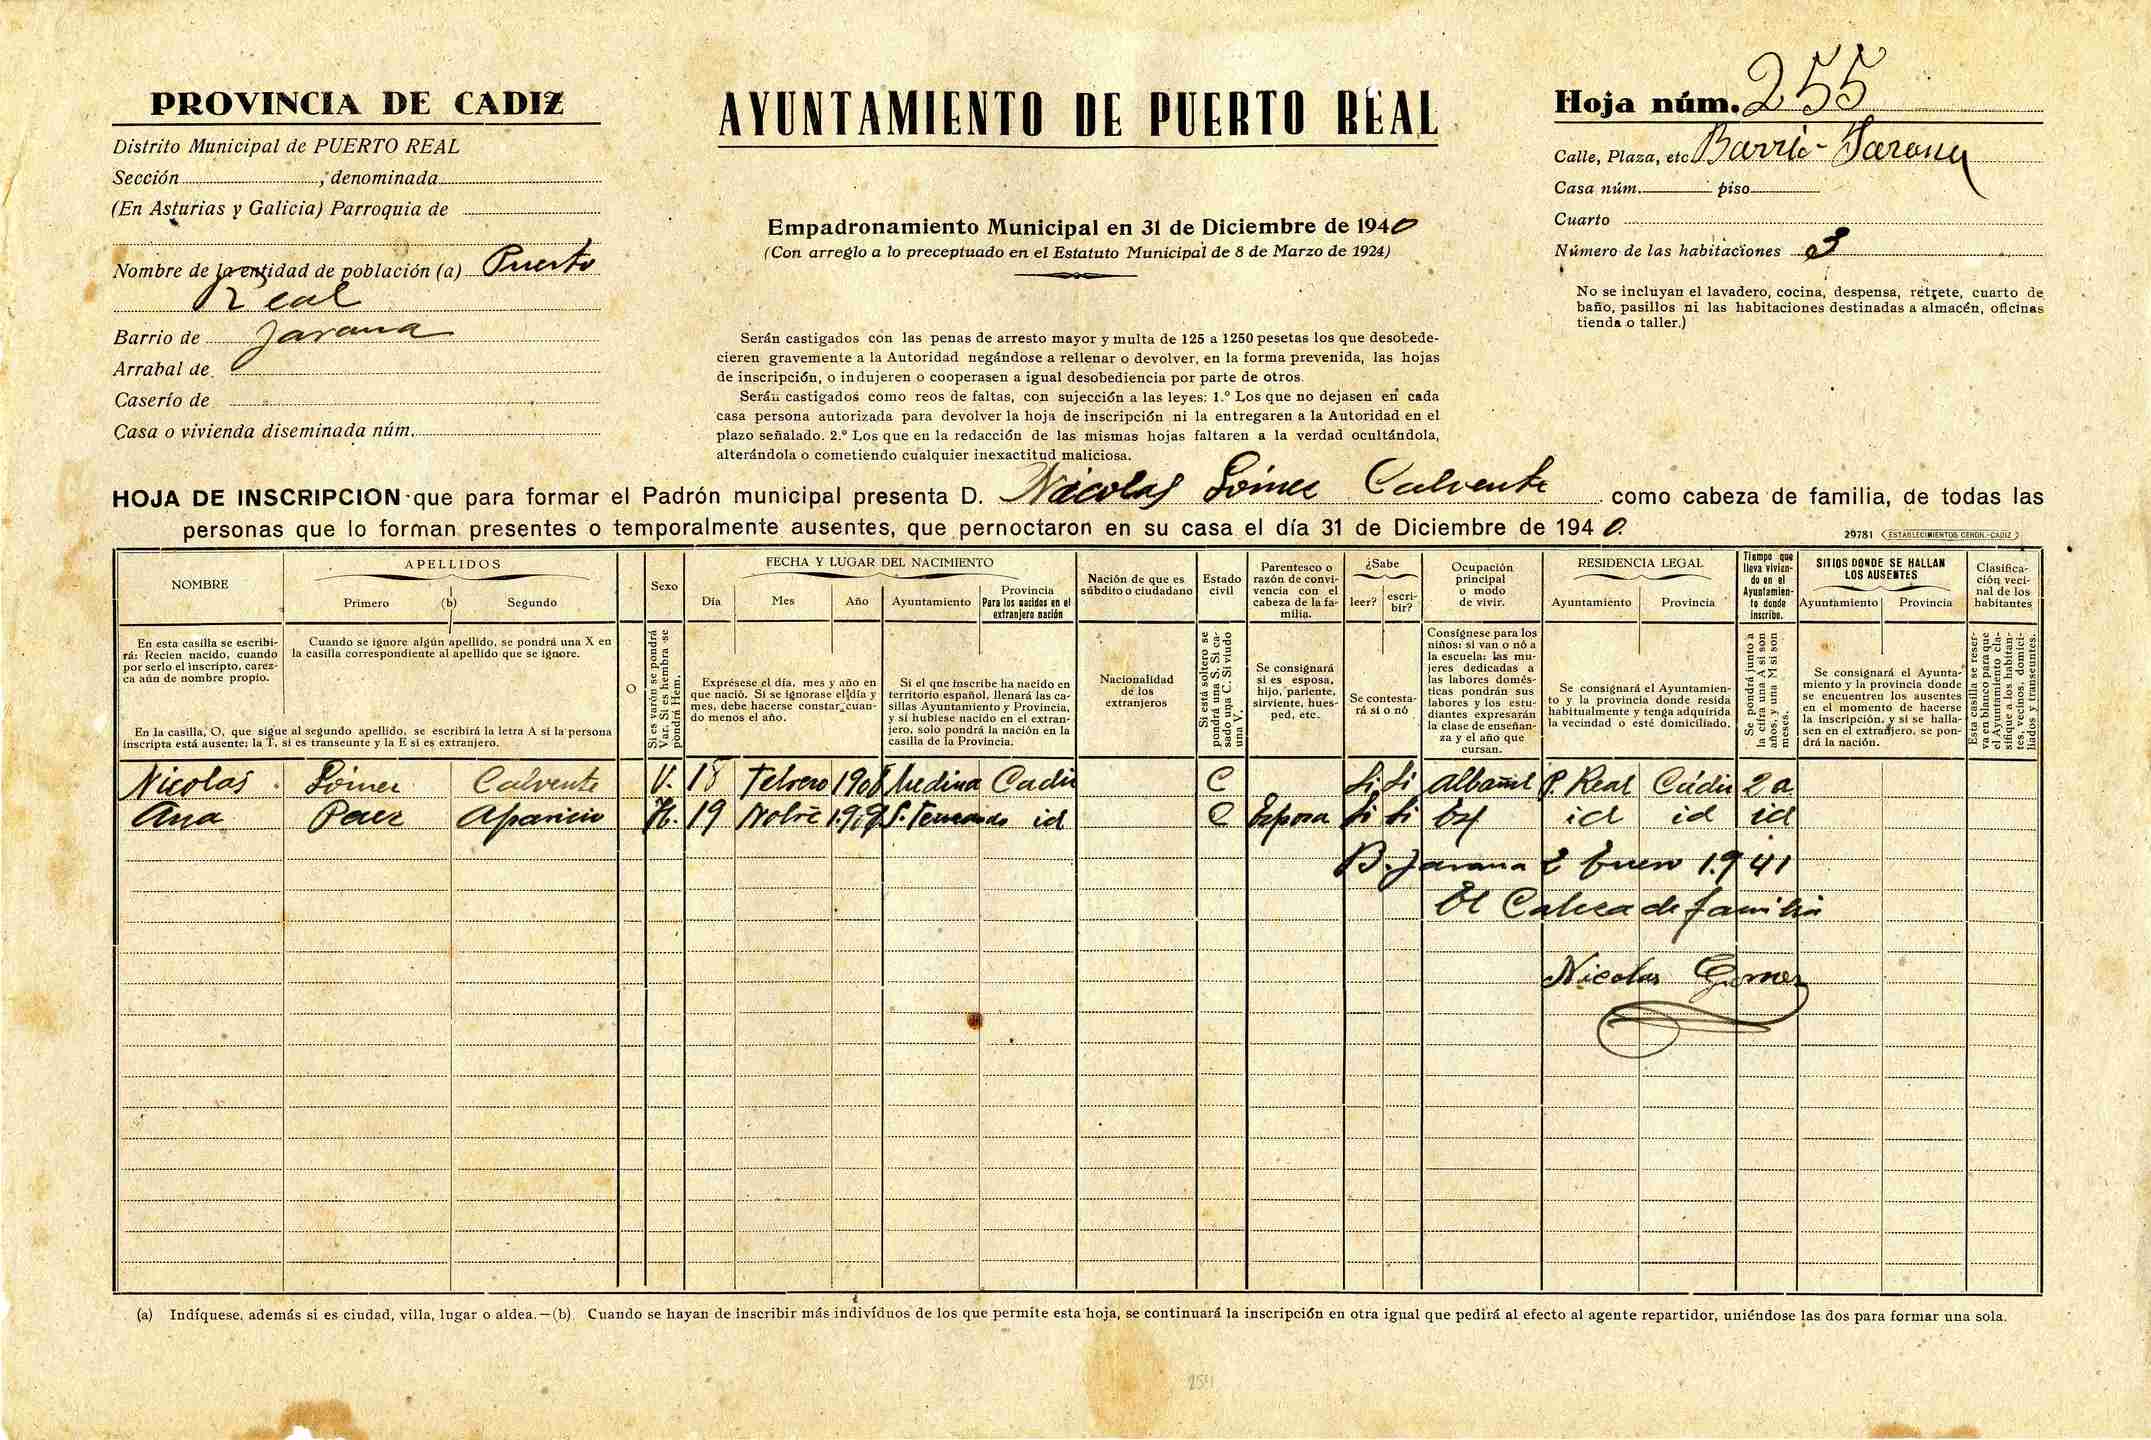 PROVINCIA DE CADIZ
Distrito Municipal de PUERTO REAL
Sección ; denominada
(En Asturias y Galicia) Parroquia de
Nombre de la entidad de población (a) Puerto
Real
Barrio de Jarana
Arrabal de
Caserío de
Casa o vivienda diseminada núm.
AYUNTAMIENTO DE PUERTO REAL
Empadronamiento Municipal en 31 de Diciembre de 1940
(Con arreglo a lo preceptuado en el Estatuto Municipal de 8 de Marzo de 1924)
Serán castigados con las penas de arresto mayor y multa de 125 a 1250 pesetas los que desobede-
cieren gravemente a la Autoridad negándose a rellenar o devolver, en la forma prevenida, las hojas
de inscripción, o indujeren o cooperasen a igual desobediencia por parte de otros.
Serán castigados como reos de faltas, con sujección a las leyes: 1.º Los que no dejasen en cada
casa persona autorizada para devolver la hoja de inscripción ni la entregaren a la Autoridad en el
plazo señalado. 2.º Los que en la redacción de las mismas hojas faltaren a la verdad ocultándola,
alterándola o cometiendo cualquier inexactitud maliciosa.
Hoja núm. 255
Calle, Plaza, etc Barrio-Jarana
Casa núm. piso
Cuarto
Número de las habitaciones 3
No se incluyan el lavadero, cocina, despensa, retrete, cuarto de
baño, pasillos ni las habitaciones destinadas a almacén, oficinas
tienda o taller.)
HOJA DE INSCRIPCION que para formar el Padrón municipal presenta D. Nicolas Gómez Calvente como cabeza de familia, de todas las
personas que lo forman presentes o temporalmente ausentes, que pernoctaron en su casa el día 31 de Diciembre de 1940.
29781 ESTABLECIMIENTOS CERON.-CADIZ
NOMBRE
APELLIDOS
Primero (b) Segundo
O
Sexo
FECHA Y LUGAR DEL NACIMIENTO
Día Mes Año Ayuntamiento
Provincia
Para los nacidos en el
extranjero nación
Nación de que es
súbdito o ciudadano
Estado
civil
Parentesco o
razón de convi-
vencia con el
cabeza de la fa-
milia.
¿Sabe
leer? escri-
bir?
Ocupación
principal
o modo
de vivir.
RESIDENCIA LEGAL
Ayuntamiento Provincia
Tiempo que
lleva vivien-
do en el
Ayuntamien-
to donde
inscribe.
SITIOS DONDE SE HALLAN
LOS AUSENTES
Ayuntamiento Provincia
Clasifica-
ción veci-
nal de los
habitantes
En esta casilla se escribi-
rá: Recien nacido, cuando
por serlo el inscripto, carez-
ca aún de nombre propio.
Cuando se ignore algún apellido, se pondrá una X en
la casilla correspondiente al apellido que se ignore.
En la casilla, O, que sigue al segundo apellido, se escribirá la letra A si la persona
inscripta está ausente; la T, si es transeunte y la E si es extranjero.
Si es varón se pondrá
Var. Si es hembra se
pondrá Hem.
Exprésese el día, mes y año en
que nació. Si se ignorase el día y
mes, debe hacerse constar cuan-
do menos el año.
Si el que inscribe ha nacido en
territorio español, llenará las ca-
sillas Ayuntamiento y Provincia,
y si hubiese nacido en el extran-
jero, solo pondrá la nación en la
casilla de la Provincia.
Nacionalidad
de los
extranjeros
Si está soltero se
pondrá una S. Si ca-
sado una C. Si viudo
una V.
Se consignará
si es esposa,
hijo, pariente,
sirviente, hues-
ped, etc.
Se contesta-
rá si o nó
Consígnese para los
niños: si van o nó a
la escuela: las mu-
jeres dedicadas a
las labores domés-
ticas pondrán sus
labores y los estu-
diantes expresarán
la clase de enseñan-
za y el año que
cursan.
Se consignará el Ayuntamien-
to y la provincia donde resida
habitualmente y tenga adquirida
la vecindad o esté domiciliado.
Se pondrá junto a
la cifra una A si son
años, y una M si son
meses.
Se consignará el Ayunta-
miento y la provincia donde
se encuentren los ausentes
en el momento de hacerse
la inscripción, y si se halla-
sen en el extranjero, se pon-
drá la nación.
Esta casilla se reser-
va en blanco para que
el Ayuntamiento cla-
sifique a los habitan-
tes, vecinos, domici-
liados y transeuntes.
Nicolas Gómez Calvente V. 18 Febrero 1908 Medina Cadiz C Si Si Albañil P. Real Cádiz 2 a
Ana Paez Aparicio H. 19 Nobre 1909 S. Fernando id C Esposa Si Si id id id
B. Jarana 2 Enero 1.941
El Cabeza de familia
Nicolas Gomez
(a) Indíquese, además si es ciudad, villa, lugar o aldea.—(b) Cuando se hayan de inscribir más indivíduos de los que permite esta hoja, se continuará la inscripción en otra igual que pedirá al efecto al agente repartidor, uniéndose las dos para formar una sola.